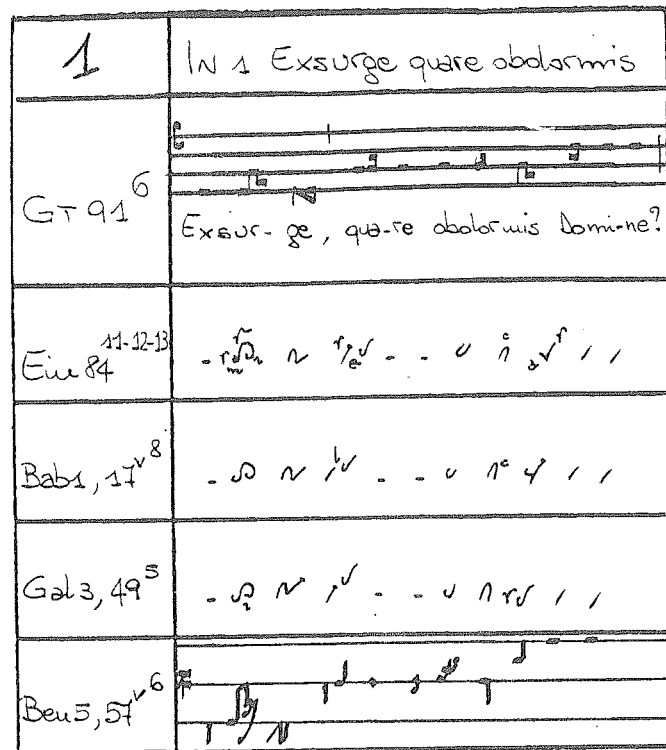 1
IN 1 Exsurge quare obdormis
GT 91 6
Exsur-ge, qua-re obdormis Domi-ne?
Ein 84 11-12-13
Bab1, 17 v 8
Gal 3, 49 5
Ben5, 57 v 6